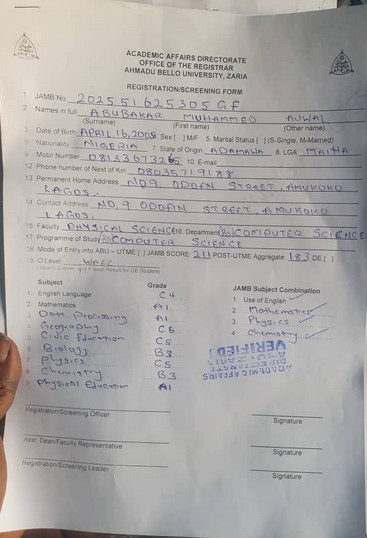 ACADEMIC AFFAIRS DIRECTORATE
OFFICE OF THE REGISTRAR
AHMADU BELLO UNIVERSITY, ZARIA
REGISTRATION/SCREENING FORM
1 JAMB No 202551625305GF
2 Names in full ABUBAKAR MUHAMMED AUWAL
(Surname) (First name) (Other name)
3 Date of Birth APRIL 16, Sex [ ] M/F 5. Marital Status [ ] (S-Single, M-Married)
6 Nationality NIGERIA 7 State of Origin ADAMAWA 8. LGA MAIHA
9 Mobil Number 10 E-mail
12 Phone number of Next of Kin 08035719188
13 Permanent Home Address NO 9 ODDFN STREET, AMUKOKO
LAGOS.
14 Contact Address NO.9 ODDFIN STREET, AMUKOKO
LAGOS.
15 Faculty PHYSICAL SCIENCE 16 Department BSc COMPUTER SCIENCE
17 Programme of Study BSc COMPUTER SCIENCE
18 Mode of Entry into ABU - UTME [ ] JAMB SCORE 211 POST-UTME Aggregate 183 DE [ ]
O'Level WAEC
Subject Grade JAMB Subject Combination
1 English Language C4 1 Use of English
2 Mathematics A1 2 Mathematics
3 Data Processing A1 3 Physics
4 Geography C6 4 Chemistry
5 Civic Education C5
6 Biology B3
7 Physics C5
8 Chemistry B3
9 Physical Education A1
ACADEMIC AFFAIRS
DIRECTORATE
VERIFIED
Registration/Screening Officer Signature
Asst. Dean/Faculty Representative Signature
Registration/Screening Leader Signature